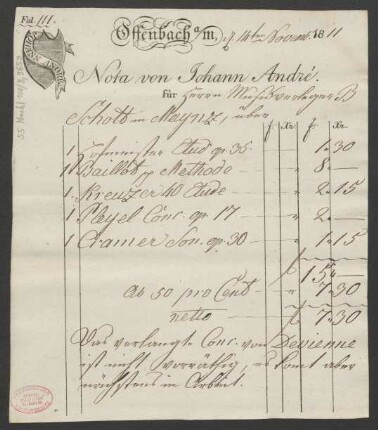 Fol. 111.
Offenbach a/m, d. 14ten Novem. 1811
Nota von Johann André.
für Herrn Musikverleger B
Schott in Maynz, über
f. Xr. f. Xr.
1 Hofmeister Etud op. 35 1 " 30
1 Baillot Methode 8 " –
1 Kreuzer 40 Etude 2 " 15
1 Pleyel Conc. op. 17 2 " –
1 Cramer Son. op. 30 1 " 15
f 15 " –
ab 50 pro Cent 7 " 30
netto f 7 " 30
Das verlangte Conc. von Devienne
ist nicht vorräthig, es komt aber
nächstens in Arbeit.